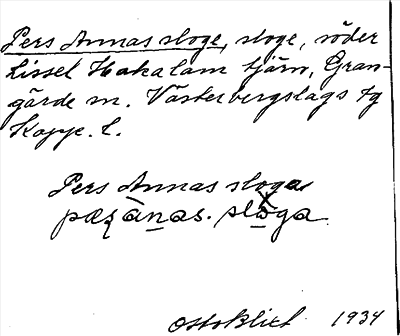 Pers Annas sloge, sloge, söder
Lissel Hakalam tjärn, Gran-
gärde sn. Västerbergslags tg
Kopp. l.
Pers Annas sloga
pæʂànas. slòga
1934